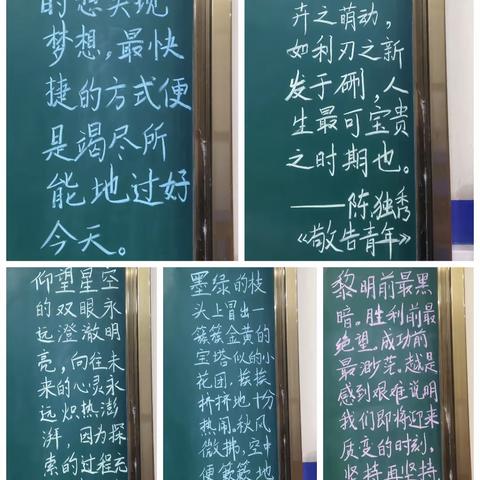 的想实现
梦想,最快
捷的方式便
是竭尽所
能地过好
今天。
卉之萌动,
如利刃之新
发于硎,人
生最可宝贵
之时期也。
——陈独秀
《敬告青年》
仰望星空
的双眼永
远澄澈明
亮,向往未
来的心灵永
远炽热澎
湃,因为探
索的过程充
墨绿的枝
头上冒出一
簇簇金黄的
宝塔似的小
花团,挨挨
挤挤地十分
热闹。秋风
微拂,空中
便簌簌地
黎明前最黑
暗。胜利前最
绝望。成功前
最渺茫。越是
感到艰难说明
我们即将迎来
质变的时刻。
坚持再坚持